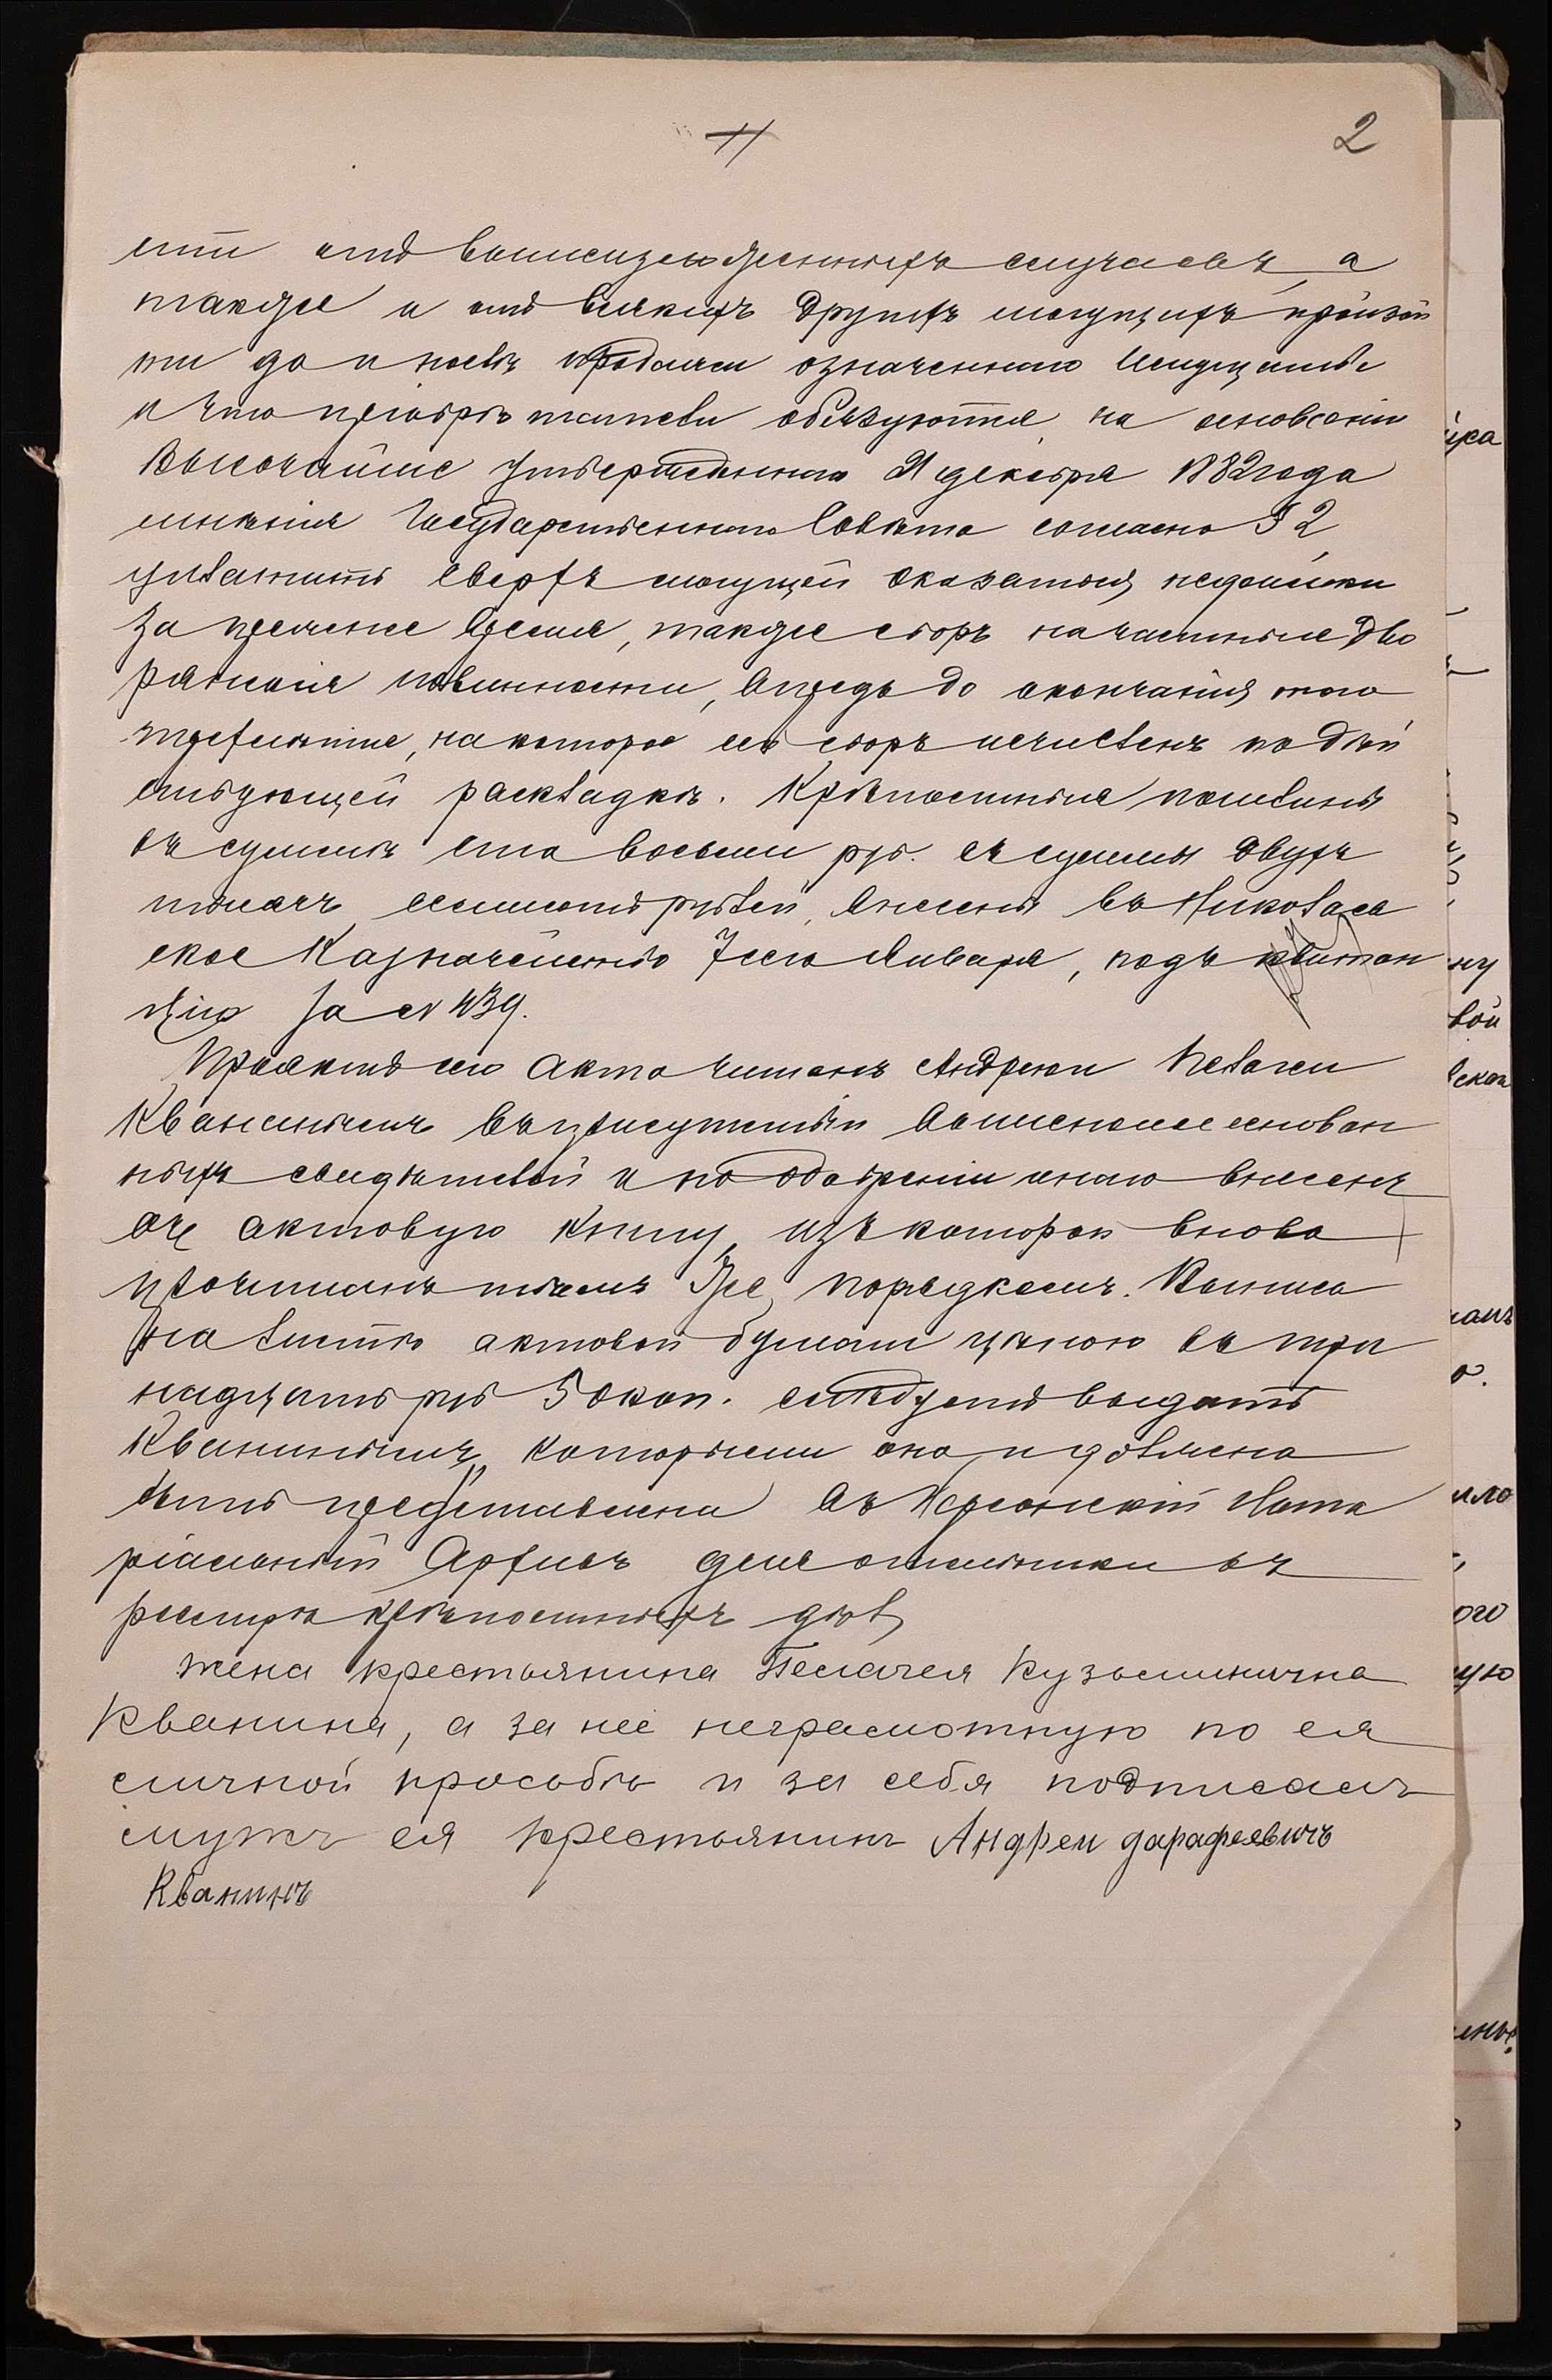 2
сти отъ вышеизложенныхъ случаевъ, а
также и отъ всякихъ другихъ могущихъ произой
ти до и послѣ продажи означеннаго имущества
и что пріобрѣтатели обязуются, на основаніи
Высочайше утвержденнаго 21 декабря 1882 года
мнѣнія Государственнаго Совѣта согласно § 2,
уплатить сверхъ могущей оказаться недоимки
за прежнее время, также сборъ на частныя дво
рянскія повинности, впредь до окончанія того
трехлѣтія, на которое сей сборъ исчисленъ по дѣй
ствующей раскладкѣ. Крѣпостныя пошлины
въ суммѣ ста восьми руб. съ суммы двухъ
тысячъ семисотъ рублей, внесены въ Николаев
ское Казначейство 7 сего Января, подъ квитан
цію за № 439.
Проектъ сего акта читанъ Андрею и Пелагеи
Кванинымъ въ присутствіи вышепоименован
ныхъ свидѣтелей и по одобреніи ими внесенъ
въ актовую книгу, изъ которой вновь
прочитанъ тѣмъ же порядкомъ. Выпись
на листѣ актовой бумаги цѣною въ три
надцать руб 50 коп. слѣдуетъ выдать
Кванинымъ, которыми она и должна
быть представлена въ Херсонскій Нота
ріальный Архивъ для отмѣтки въ
реестрѣ крѣпостныхъ дѣлъ
жена крестьянина Пелагея Кузьминична
Кванина, а за неё неграмотную по ея
личной просьбѣ и за себя подписалъ
мужъ ея крестьянинъ Андреи дарафеевичъ
Кванинъ